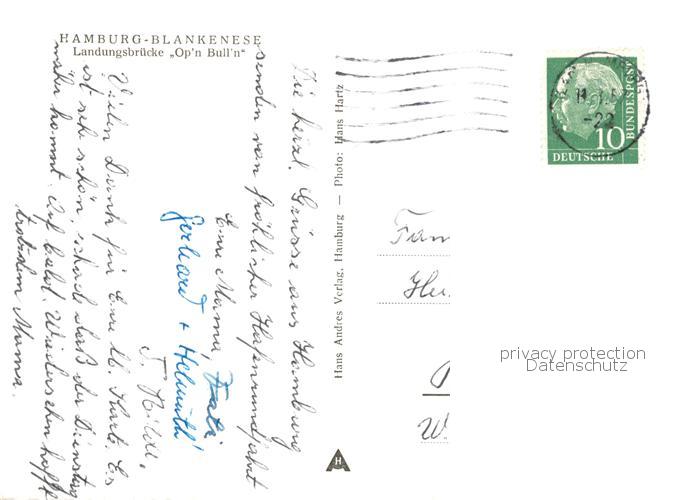 HAMBURG-BLANKENESE
Landungsbrücke „Op'n Bull'n“
Die herzl. Grüsse aus Hamburg
senden von fröhlicher Hafenrundfahrt
Eure Mama
Gerhard + Helmuth
Vielen Dank für Eure lb. Karte. Es
ist sehr schön, schade daß der Dienstag
näher kommt. Auf bald. Wiedersehen hofft
trotzdem Mama.
Hans Andres Verlag, Hamburg — Photo: Hans Hartz
H
10
DEUTSCHE
BUNDESPOST
-22
Fam
privacy protection
Datenschutz
W.